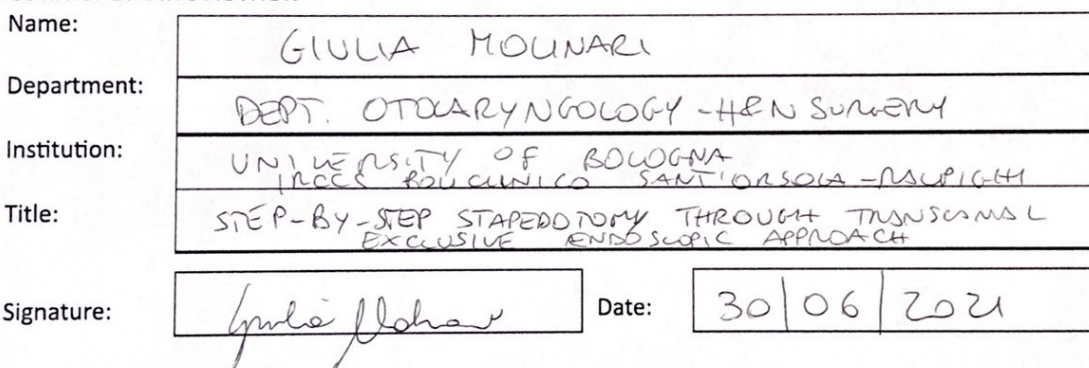 Name: GIULIA MOLINARI
Department: DEPT. OTOLARYNGOLOGY-H&N SURGERY
Institution: UNIVERSITY OF BOLOGNA
IRCCS POLICLINICO SANT'ORSOLA-MALPIGHI
Title: STEP-BY-STEP STAPEDOTOMY THROUGH TRANSCANAL
EXCLUSIVE ENDOSCOPIC APPROACH
Signature: Giulia Molinari Date: 30 06 2021